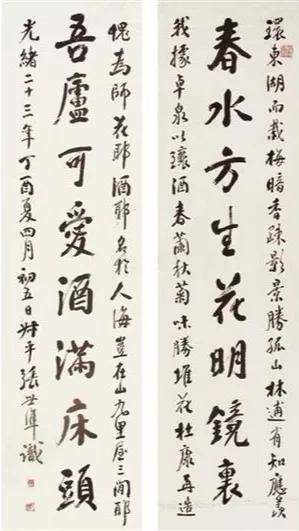 環東湖而栽梅暗香疎影景勝孤山林逋有知應羨
春水方生花明鏡裏
我據卓泉以釀酒春蘭秋菊味勝堆花杜康再造
愧為師花耶酒耶名於人海豈在山九里屋三間耶
吾廬可愛酒滿床頭
光緒二十三年丁酉夏四月初五日叔平張世準識